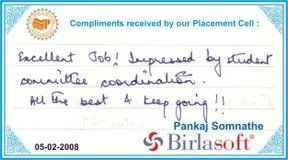 Compliments received by our Placement Cell :
Excellent Job! Impressed by student
committee coordination.
All the best & keep going!!
Pankaj Somnathe
05-02-2008
Birlasoft